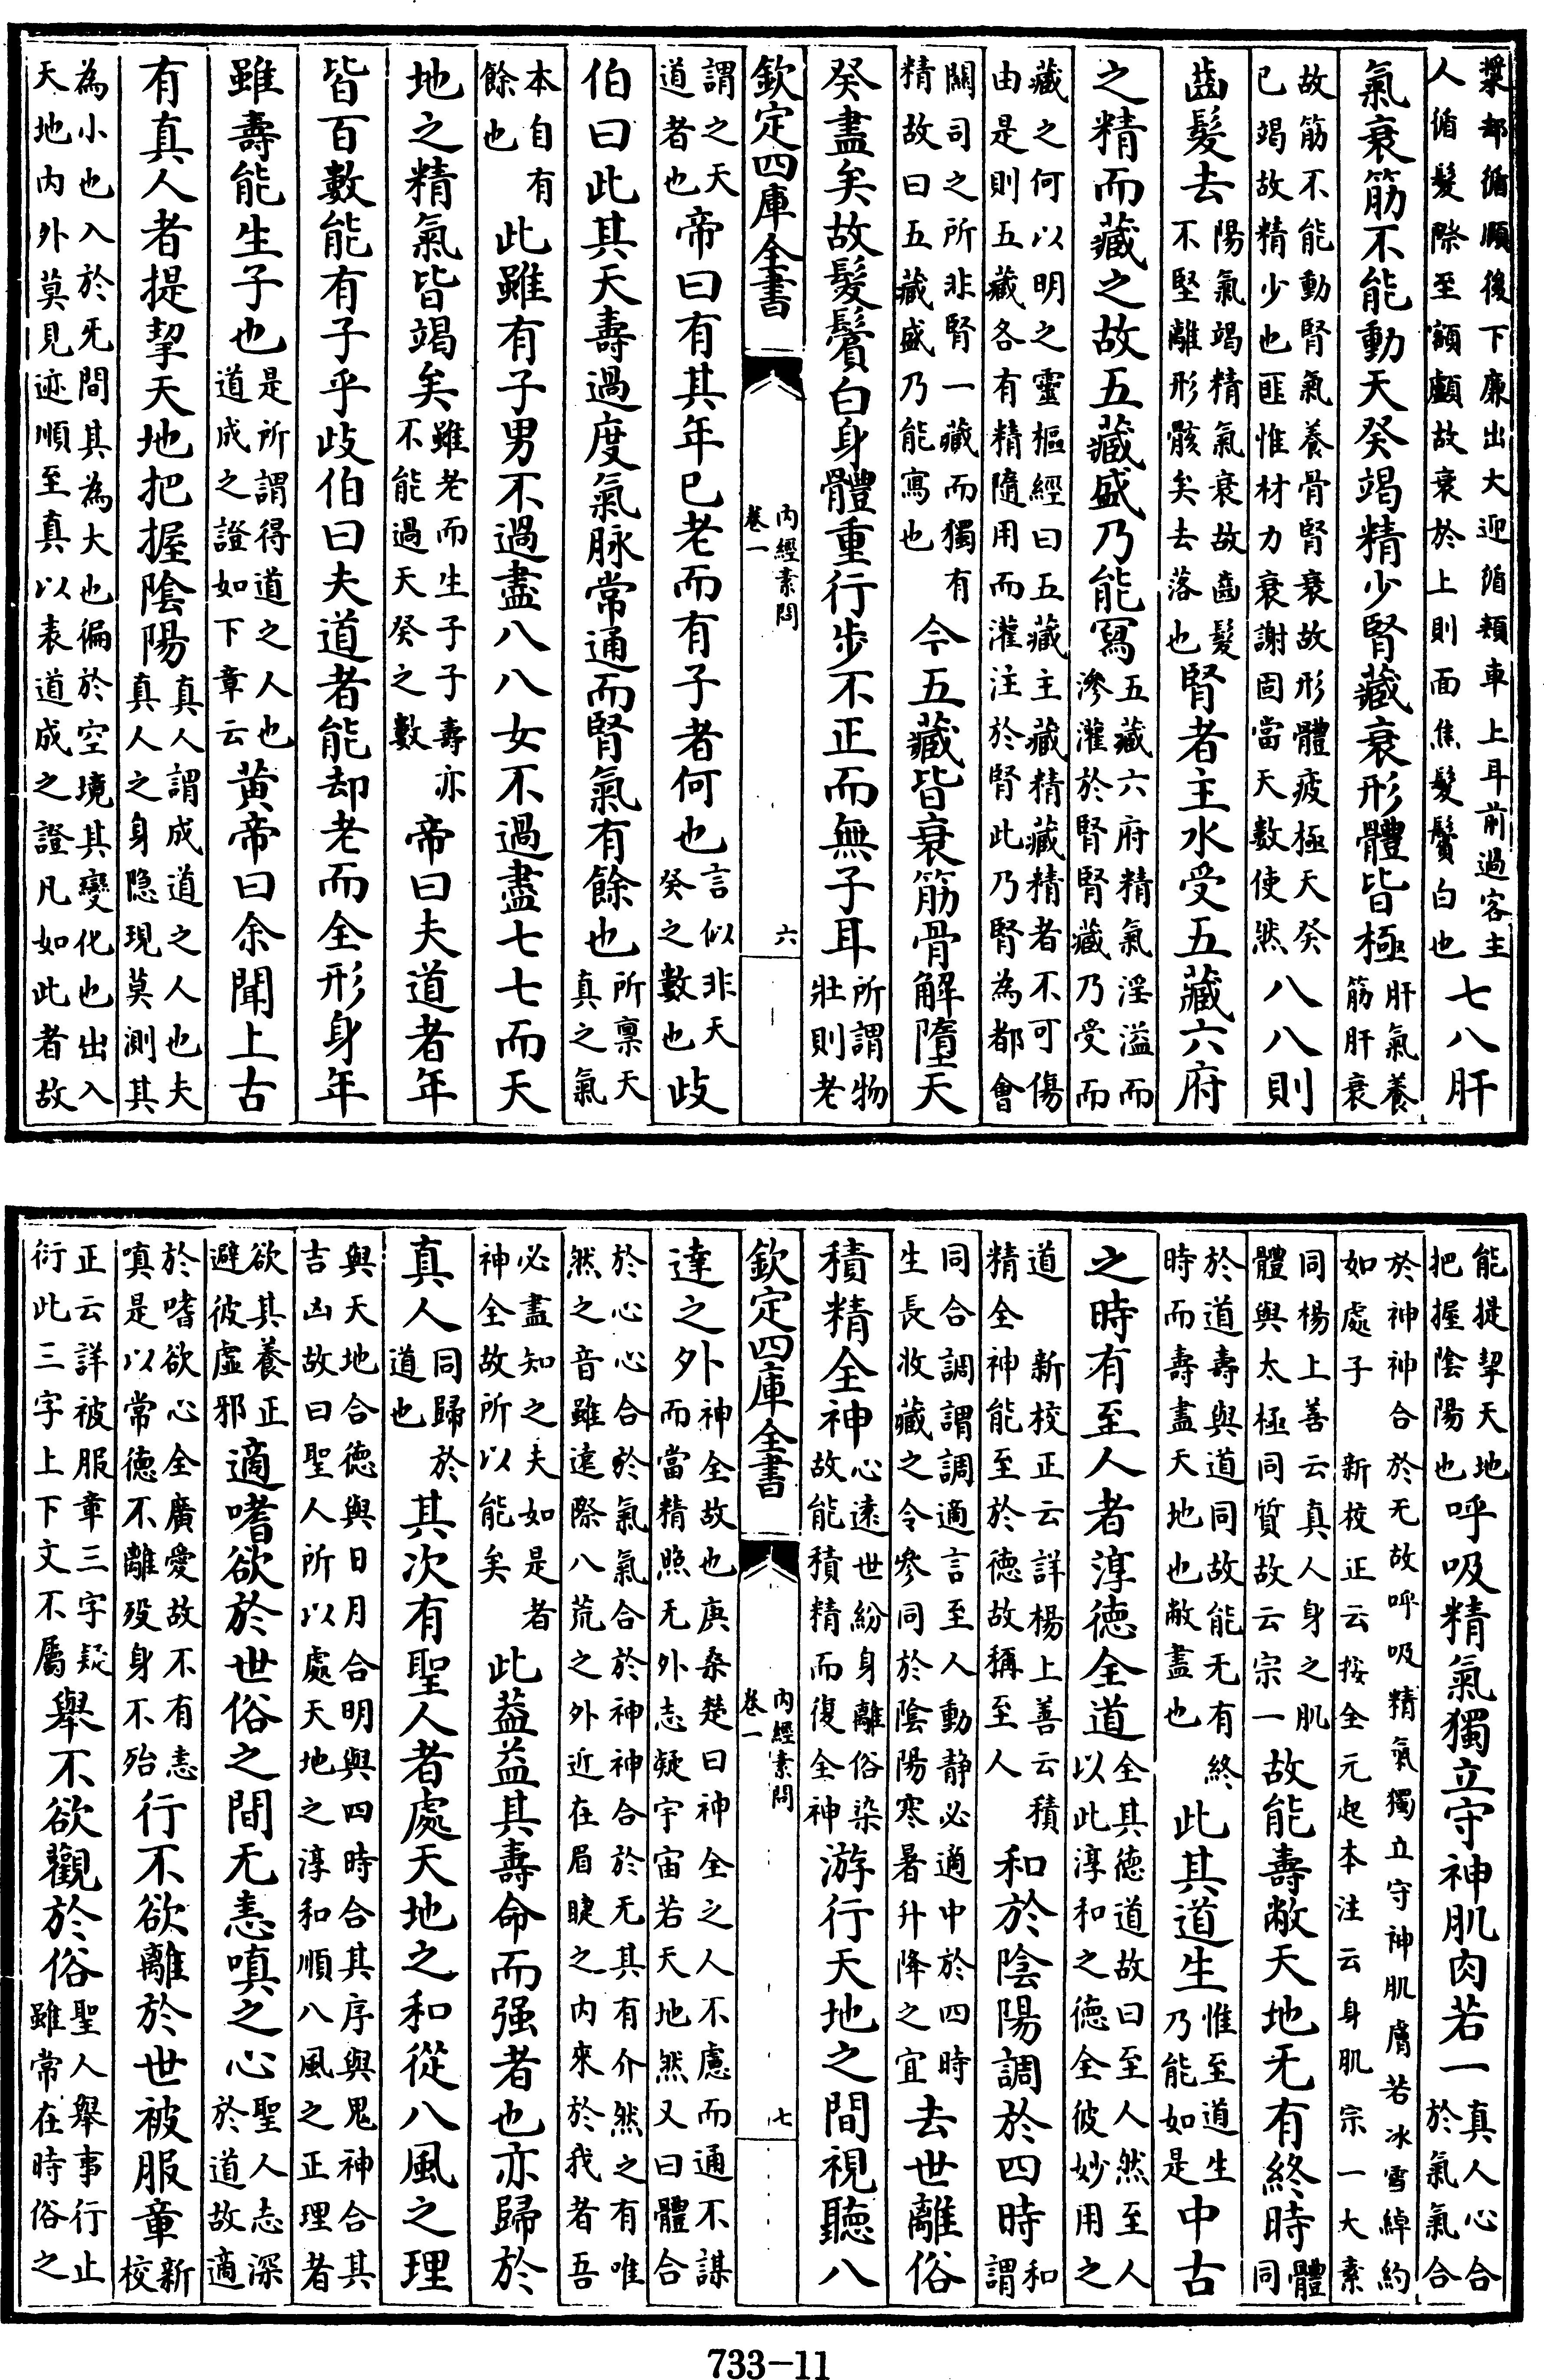 漿却循頤後下廉出大迎循頰車上耳前過客主
人循髮際至額顱故衰於上則面焦髮鬢白也七八肝
氣衰筋不能動天癸竭精少腎藏衰形體皆極肝氣養筋肝衰
故筋不能動腎氣養骨腎衰故形體疲極天癸已竭故精少也匪惟材力衰謝固當天數使然八八則
齒髮去陽氣竭精氣衰故齒髮不堅離形骸矣去落也腎者主水受五藏六府
之精而藏之故五藏盛乃能冩五藏六府精氣淫溢而滲灌於腎腎藏乃受而
藏之何以明之靈樞經曰五藏主藏精藏精者不可傷由是則五藏各有精隨用而灌注於腎此乃腎為都會
關司之所非腎一藏而獨有精故曰五藏盛乃能寫也今五藏皆衰筋骨解墮天
癸盡矣故髮鬢白身體重行步不正而無子耳所謂物壯則老
欽定四庫全書
内經素問
卷一
六
謂之天道者也帝曰有其年已老而有子者何也言似非天癸之數也歧
伯曰此其天壽過度氣脉常通而腎氣有餘也所禀天真之氣
本自有餘也此雖有子男不過盡八八女不過盡七七而天
地之精氣皆竭矣雖老而生子子壽亦不能過天癸之數帝曰夫道者年
皆百數能有子乎歧伯曰夫道者能却老而全形身年
雖壽能生子也是所謂得道之人也道成之證如下章云黄帝曰余聞上古
有真人者提挈天地把握陰陽真人謂成道之人也夫真人之身隠現莫測其
為小也入於旡間其為大也徧於空境其變化也出入天地内外莫見迹順至真以表道成之證凡如此者故
能提挈天地把握陰陽也呼吸精氣獨立守神肌肉若一真人心合於氣氣合
於神神合於无故呼吸精氣獨立守神肌膚若冰雪綽約如處子新校正云按全元起本注云身肌宗一太素
同楊上善云真人身之肌體與太極同質故云宗一故能壽敝天地旡有終時體同
於道壽與道同故能无有終時而壽盡天地也敝盡也此其道生惟至道生乃能如是中古
之時有至人者淳徳全道全其徳道故曰至人然至人以此淳和之徳全彼妙用之
道新校正云詳楊上善云積精全神能至於徳故稱至人和於陰陽調於四時和謂
同合調謂調適言至人動静必適中於四時生長收藏之令參同於陰陽寒暑升降之宜去世離俗
積精全神心逺世紛身離俗染故能積精而復全神游行天地之間視聽八
欽定四庫全書
内經素問
卷一
七
達之外神全故也庚桑楚曰神全之人不慮而通不謀而當精照无外志凝宇宙若天地然又曰體合
於心心合於氣氣合於神神合於无其有介然之有唯然之音雖逺際八荒之外近在眉睫之内來於我者吾
必盡知之夫如是者神全故所以能矣此葢益其壽命而强者也亦歸於
真人同歸於道也其次有聖人者處天地之和從八風之理
與天地合徳與日月合明與四時合其序與鬼神合其吉凶故曰聖人所以處天地之淳和順八風之正理者
欲其養正避彼虚邪適嗜欲於世俗之間无恚嗔之心聖人志深於道故適
於嗜欲心全廣愛故不有恚嗔是以常徳不離殁身不殆行不欲離於世被服章新校
正云詳被服章三字疑衍此三字上下文不屬舉不欲觀於俗聖人舉事行止雖常在時俗之
733-11